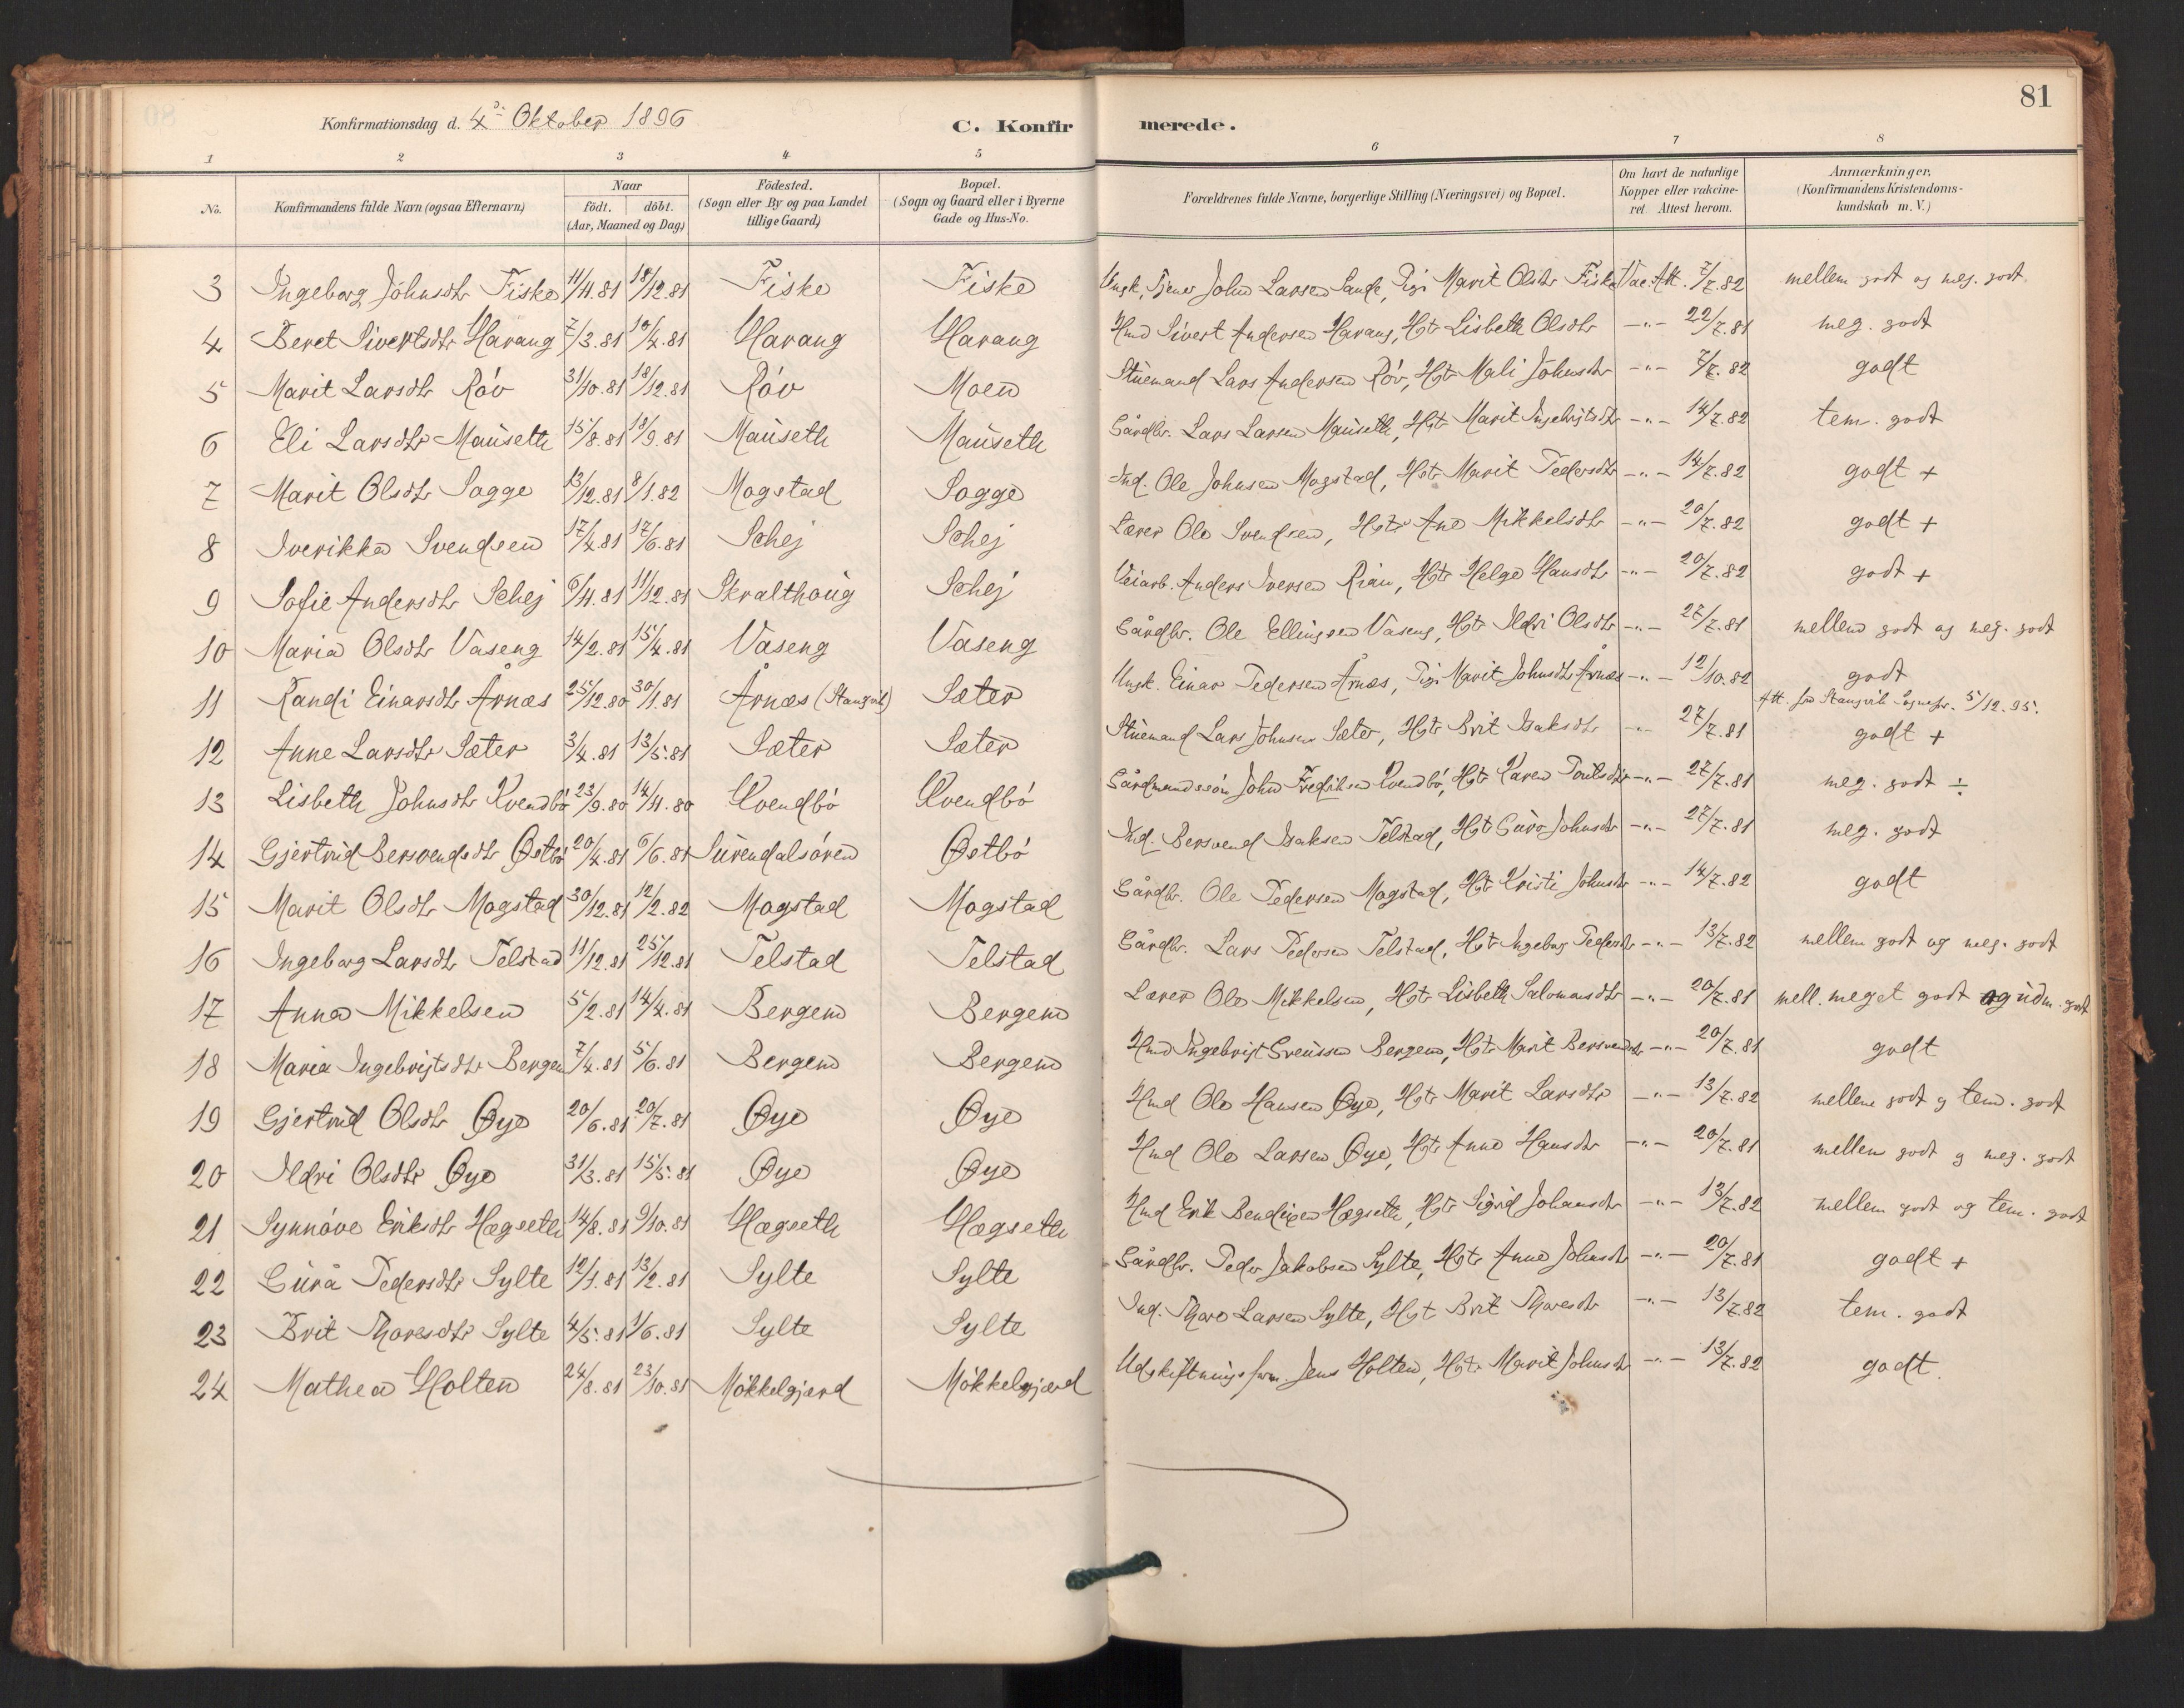 81
Konfirmationsdag d. 4de Oktober 1896 C. Konfirmerede.
1 2 3 4 5 6 7 8
No. Konfirmandens fulde Navn (ogsaa Efternavn) Naar födt. döbt. (Aar, Maaned og Dag) Födested. (Sogn eller By og paa Landet tillige Gaard) Bopæl. (Sogn og Gaard eller i Byerne Gade og Hus-No. Forældrenes fulde Navne, borgerlige Stilling (Næringsvei) og Bopæl. Om havt de naturlige Kopper eller vakcineret. Attest herom. Anmærkninger. (Konfirmandens Kristendomskundskab m.V.)
3 Ingeborg Johnsdtr Fiske 11/11.81 18/12.81 Fiske Fiske Ungk, Tjener John Larsen Sande, Pige Marit Olsdtr Fiske Vac. Att. 7/7.82 mellem godt og meg. godt
4 Beret Sivertsdtr Harang 7/3.81 10/4.81 Harang Harang Hmd Sivert Andersen Harang, Hgtr Lisbeth Olsdtr -"- 22/7.81 meg. godt
5 Marit Larsdtr Röv 31/10.81 18/12.81 Röv Moen Stuemand Lars Andersen Röv, Hgtr Mali Johnsdtr -"- 7/7.82 godt
6 Eli Larsdtr Mauseth 15/8.81 18/9.81 Mauseth Mauseth Gårdbr. Lars Larsen Mauseth, Hgtr Marit Ingebrigtsdtr -"- 14/7.82 tem. godt
7 Marit Olsdtr Sogge 13/12.81 8/1.82 Mogstad Sogge Ind. Ole Johnsen Mogstad, Hgtr Marit Pedersdtr -"- 14/7.82 godt +
8 Iverikka Svendsen 17/4.81 17/6.81 Schej Schej Lærer Ole Svendsen, Hgtr Ane Mikkelsdtr -"- 20/7.82 godt +
9 Sofie Andersdtr Schej 6/11.81 11/12.81 Skralthoug Schej Veiarb. Anders Iversen Rian, Hgtr Helge Hansdtr -"- 20/7.82 godt +
10 Maria Olsdtr Vaseng 14/2.81 15/4.81 Vaseng Vaseng Gårdbr. Ole Ellingsen Vaseng, Hgtr Ildri Olsdtr -"- 27/7.81 mellem godt og meg. godt
11 Randi Einarsdtr Årnæs 25/12.80 30/1.81 Årnæs (Stangvik) Sæter Ungk. Einar Pedersen Årnæs, Pige Marit Johnsdtr Årnæs -"- 12/10.82 godt
Att. fra Stangvik Sognepr. 5/12.95.
12 Anne Larsdtr Sæter 3/4.81 13/5.81 Sæter Sæter Stuemand Lars Johnsen Sæter, Hgtr Brit Isaksdtr -"- 27/7.81 godt +
13 Lisbeth Johnsdtr Kvendbö 23/9.80 14/11.80 Kvendbö Kvendbö Gårdmandssön John Fredriksen Kvendbö, Hgtr Karen Poulsdtr -"- 27/7.81 meg. godt ÷
14 Gjertrud Bersvendsdtr Østbö 20/4.81 6/6.81 Surendalsören Østbö Ind. Bersvend Isaksen Telstad, Hgtr Guro Johnsdtr -"- 27/7.81 meg. godt
15 Marit Olsdtr Mogstad 30/12.81 12/2.82 Mogstad Mogstad Gårdbr. Ole Pedersen Mogstad, Hgtr Kristi Johnsdtr -"- 14/7.82 godt
16 Ingeborg Larsdtr Telstad 11/12.81 25/12.81 Telstad Telstad Gårdbr. Lars Pedersen Telstad, Hgtr Ingeborg Pedersdtr -"- 13/7.82 mellem godt og meg. godt
17 Anna Mikkelsen 5/2.81 14/4.81 Bergem Bergem Lærer Ole Mikkelsen, Hgtr Lisbeth Salomonsdtr -"- 20/7.81 mell. meget godt og udm. godt
18 Maria Ingebrigtsdtr Bergem 7/4.81 5/6.81 Bergem Bergem Hmd Ingebrigt Svenssen Bergem, Hgtr Marit Bersvendsdtr -"- 20/7.81 godt
19 Gjertrud Olsdtr Øye 20/6.81 20/7.81 Øye Øye Hmd Ole Hansen Øye, Hgtr Marit Larsdtr -"- 13/7.82 mellem godt og tem. godt
20 Ildri Olsdtr Øye 31/3.81 15/5.81 Øye Øye Hmd Ole Larsen Øye, Hgtr Anne Hansdtr -"- 20/7.81 mellem godt og meg. godt
21 Synnöve Eriksdtr Hægseth 14/8.81 9/10.81 Hægseth Hægseth Hmd Erik Bendixen Hægseth, Hgtr Sigrid Johansdtr -"- 13/7.82 mellem godt og tem. godt
22 Gurå Pedersdtr Sylte 12/1.81 13/2.81 Sylte Sylte Gårdbr. Peder Jakobsen Sylte, Hgtr Anne Johnsdtr -"- 20/7.81 godt +
23 Brit Thoresdtr Sylte 4/5.81 1/6.81 Sylte Sylte Ind. Thore Larsen Sylte, Hgt Brit Thoresdtr -"- 13/7.82 tem. godt
24 Mathea Holten 24/8.81 23/10.81 Mökkelgjerd Mökkelgjerd Udskiftningsform. Jens Holten, Hgtr Marit Johnsdtr -"- 13/7.82 godt.